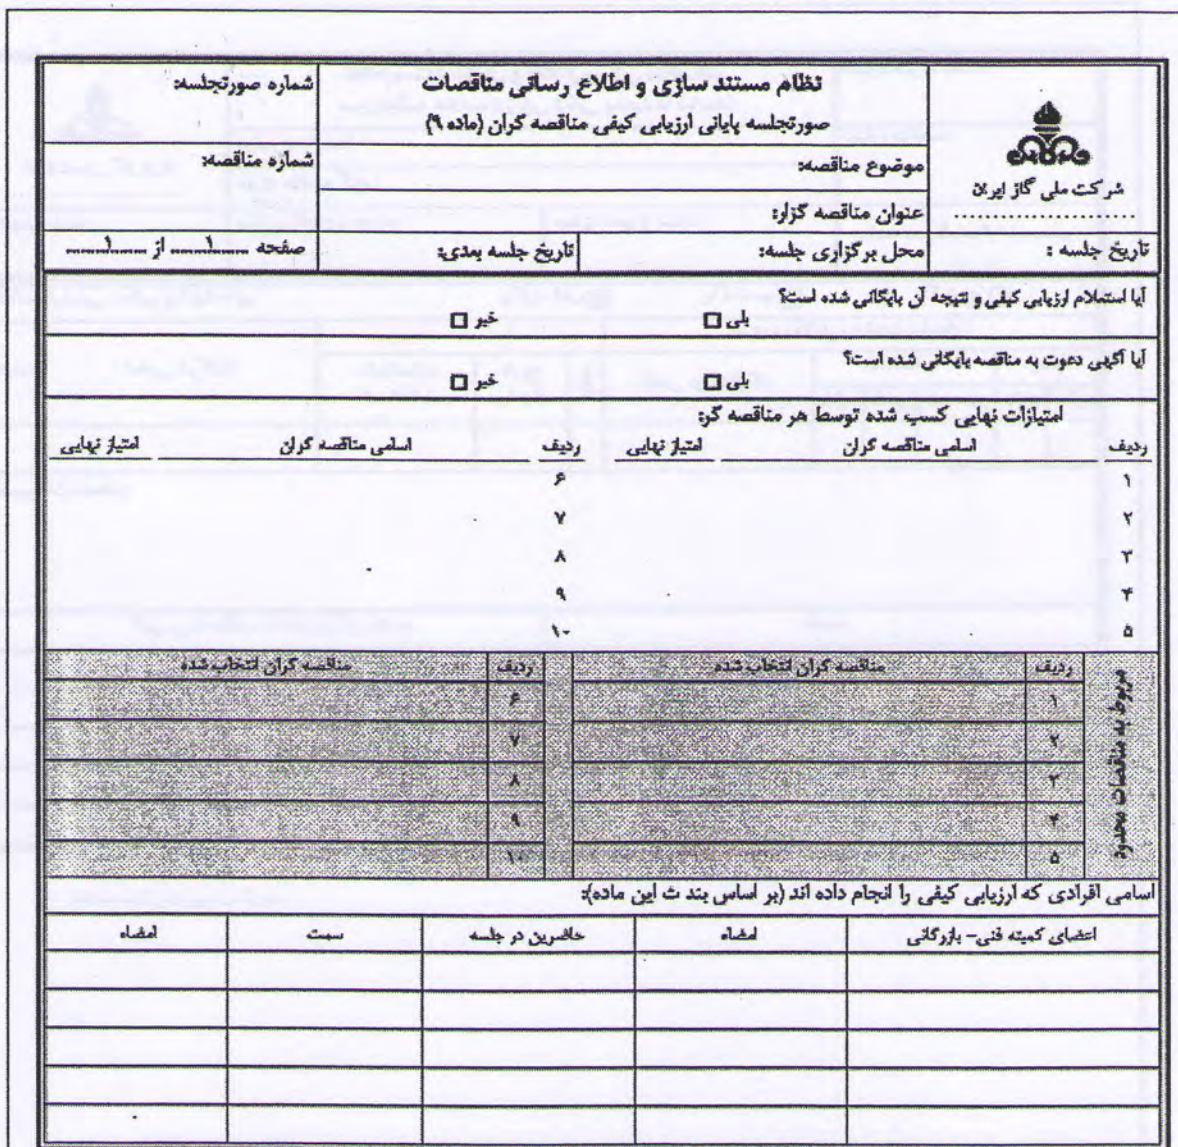 شرکت ملی گاز ایران
نظام مستند سازی و اطلاع رسانی مناقصات
صورتجلسه پایانی ارزیابی کیفی مناقصه گران (ماده ۹)
شماره صورتجلسه:
موضوع مناقصه:
شماره مناقصه:
عنوان مناقصه گزار:
تاریخ جلسه :
محل برگزاری جلسه:
تاریخ جلسه بعدی:
صفحه ۱ از ۱
آیا استعلام ارزیابی کیفی و نتیجه آن بایگانی شده است؟
بلی □ خیر □
آیا آگهی دعوت به مناقصه بایگانی شده است؟
بلی □ خیر □
امتیازات نهایی کسب شده توسط هر مناقصه گر:
ردیف اسامی مناقصه گران امتیاز نهایی ردیف اسامی مناقصه گران امتیاز نهایی
۱ ۶
۲ ۷
۳ ۸
۴ ۹
۵ ۱۰
مربوط به مناقصات محدود
ردیف مناقصه گران انتخاب شده ردیف مناقصه گران انتخاب شده
۱ ۶
۲ ۷
۳ ۸
۴ ۹
۵ ۱۰
اسامی افرادی که ارزیابی کیفی را انجام داده اند (بر اساس بند ث این ماده):
اعضای کمیته فنی- بازرگانی امضاء حاضرین در جلسه سمت امضاء